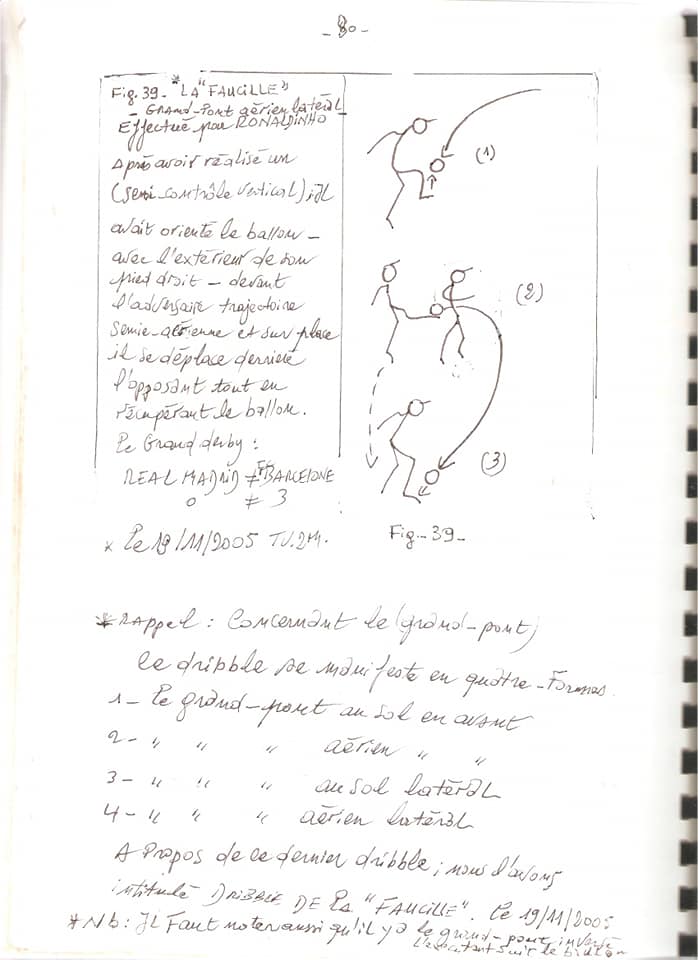 - 80 -
Fig. 39 - * "LA "FAUCILLE"
- GRAND-PONT aérien latéral
Effectué par RONALDINHO
Après avoir réalisé un
(semi contrôle vertical) il
avait orienté le ballon -
avec l'extérieur de son
pied droit - devant
l'adversaire trajectoire
semie-aérienne et sur place
il se déplace derrière
l'opposant tout en
récupérant le ballon.
Le Grand derby :
REAL MADRID ≠ BARCELONE
0 ≠ 3
* Le 19/11/2005 TV.2M.
(1)
(2)
(3)
Fig-39-
* RAppel : Concernant le (grand-pont)
le dribble se manifeste en quatre-Formes
1- Le grand-pont au sol en avant
2- " " " aérien " "
3- " " " au sol latéral
4- " " " aérien latéral
A Propos de ce dernier dribble ; nous l'avons
intitulé DRIBBLE DE LA "FAUCILLE". Le 19/11/2005
* Nb : IL Faut noter aussi qu'il y a le grand-pont inversé
L'exécutant suit le ballon